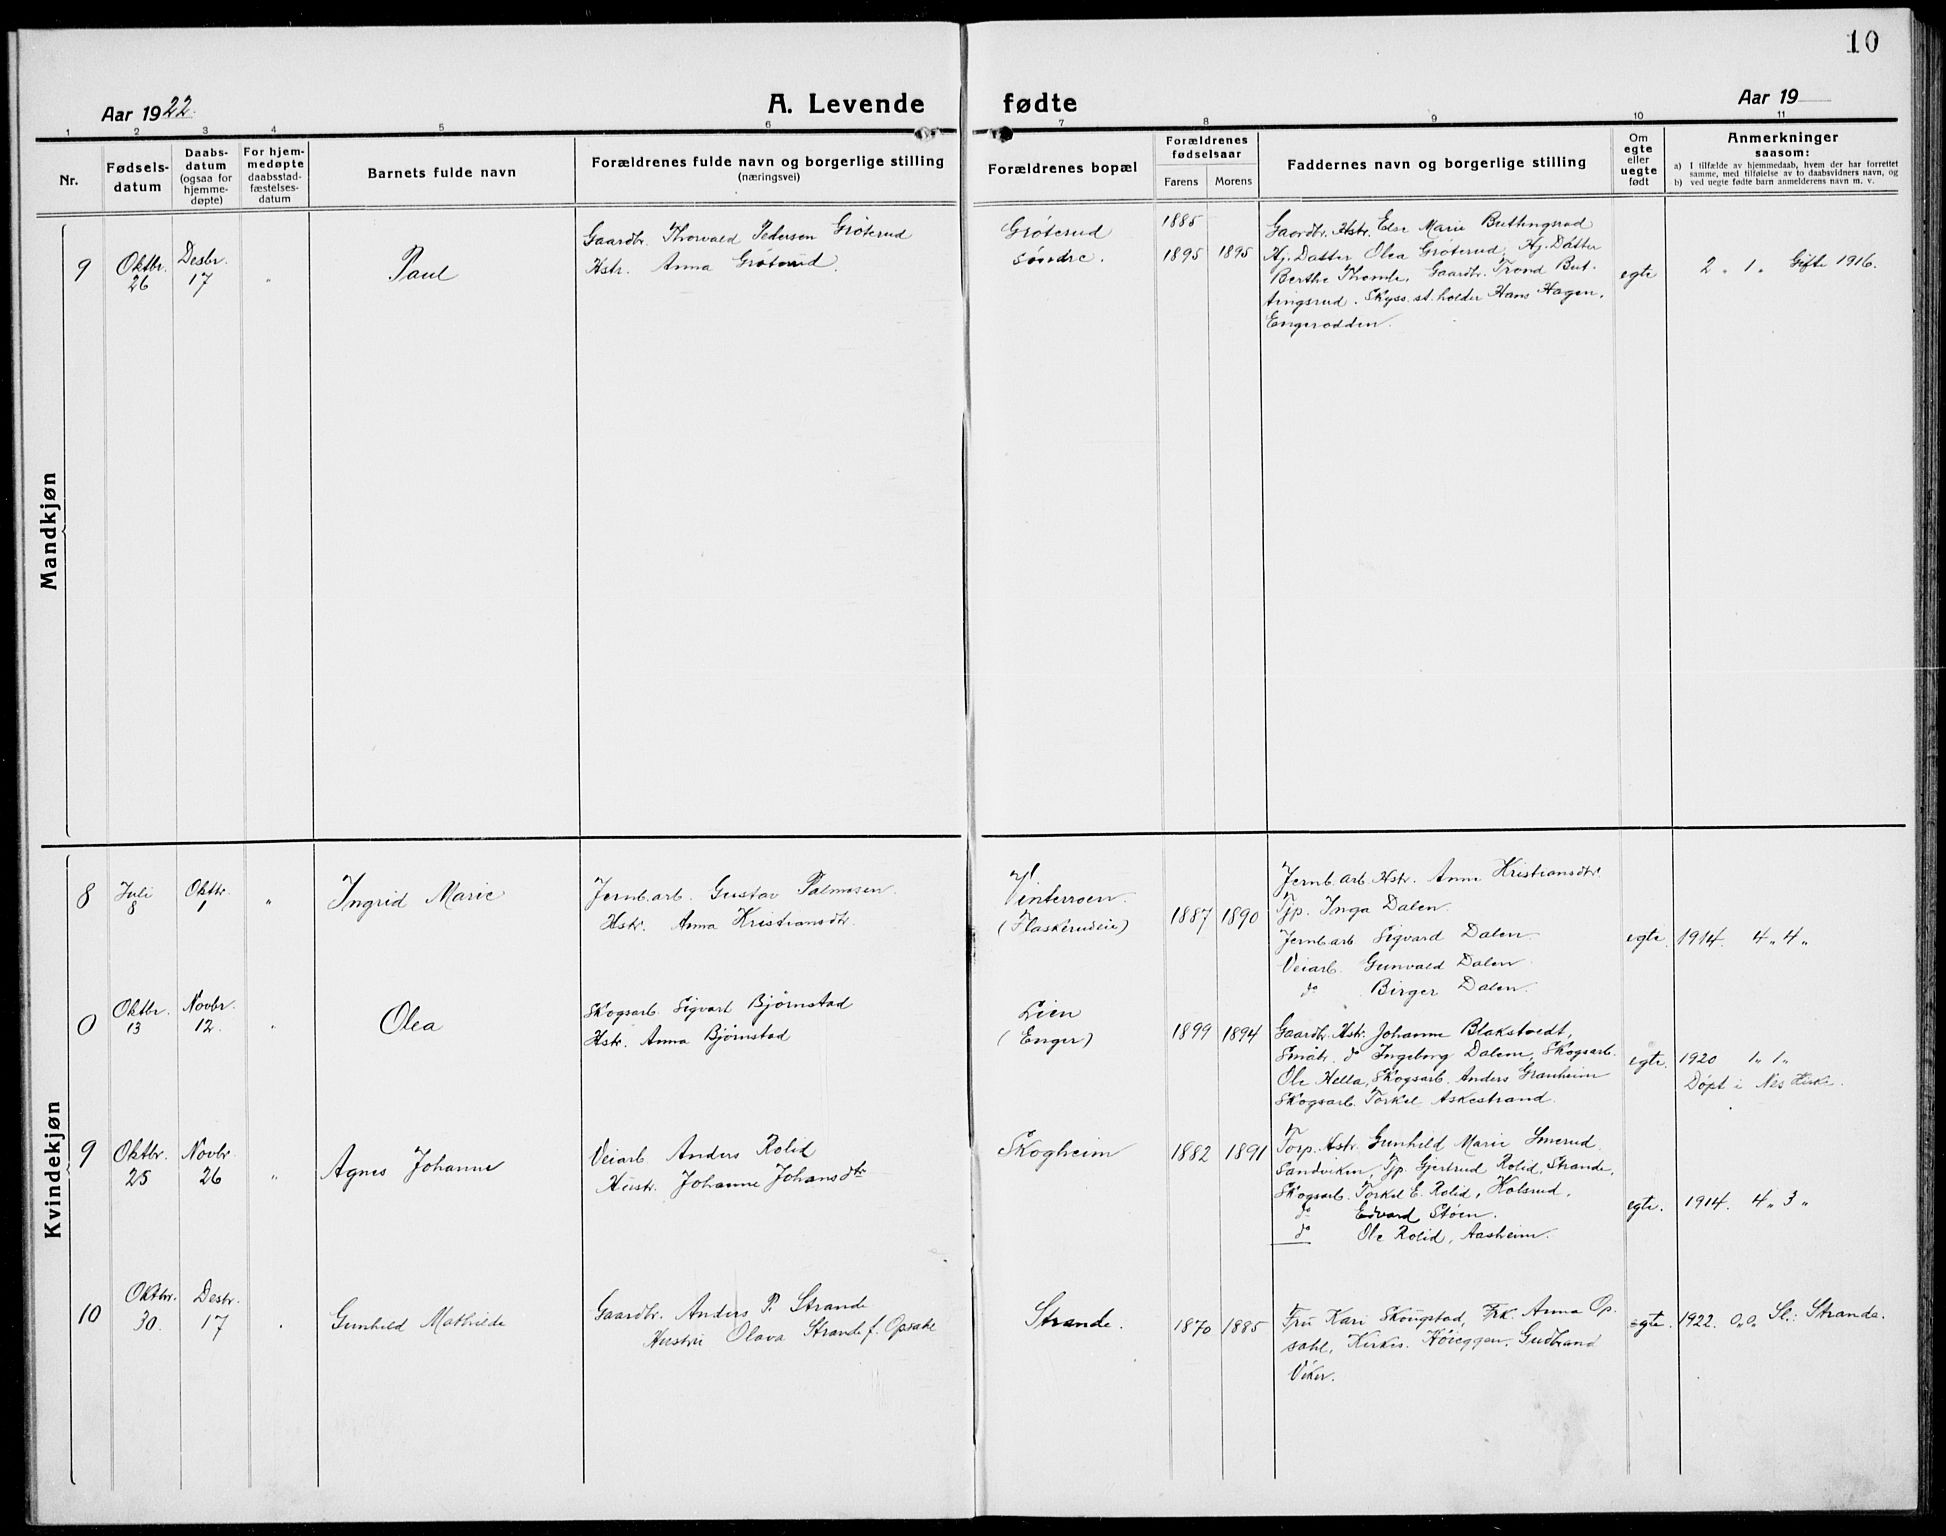 10
Aar 1922.
A. Levende fødte
Aar 19
1 2 3 4 5 6 7 8 9 10 11
Nr.
Fødsels-
datum
Daabs-
datum
(ogsaa for
hjemme-
døpte)
For hjem-
medøpte
daabsstad-
fæstelses-
datum
Barnets fulde navn
Forældrenes fulde navn og borgerlige stilling
(næringsvei)
Forældrenes bopæl
Forældrenes
fødselsaar
Farens Morens
Faddernes navn og borgerlige stilling
Om
egte
eller
uegte
født
Anmerkninger
saasom:
a) I tilfælde av hjemmedaab, hvem der har forrettet
samme, med tilføielse av to daabsvidners navn, og
b) ved uegte fødte barn anmelderens navn m. v.
Mandkjøn
9
Oktbr.
26
Desbr.
17
"
Paul
Gaardbr. Thorvald Pedersen Grøterud
Hstr. Anna Grøterud.
Grøterud
søndre.
1885
1895 1895
Gaardbr. Hstr. Else Marie Buttingsrud
Hj. Datter Olea Grøterud, Hj. Datter
Berthe Thomle, Gaardbr. Trond But-
tingsrud. Skyss.st.holder Hans Hagen,
Engerodden.
egte
2 " 1 " Gifte 1916.
Kvindekjøn
8
Juli
8
Oktbr.
1
"
Ingrid Marie
Jernb.arb. Gustav Palmesen
Hstr. Anna Kristiansdtr.
Vinterroen.
(Flaskerudeie)
1887 1890
Jernb. arb. Hstr. Anne Kristiansdtr.
Tjp. Inga Dalen
Jernb.arb Sigvard Dalen.
Veiarb. Gunvald Dalen.
do Birger Dalen.
egte.
1914. 4 " 4 "
0
Oktbr.
13
Novbr.
12.
"
Olea
Skogsarb. Sigvart Bjørnstad
Hstr. Anna Bjørnstad
Lien
(Enger)
1899 1894
Gaardbr. Hstr. Johanne Blakstvedt,
Småbr. do Ingeborg Dalene, Skogsarb.
Ole Hella, Skogsarb. Anders Granheim
Skogsarb. Torkel Askestrand.
egte.
1920 1 " 1 "
Døpt i Nes Kirke.
9
Oktbr.
25
Novbr.
26
"
Agnes Johanne
Veiarb. Anders Rolid
Hustr. Johanne Johansdtr
Skogheim
1882 1891
Torp. Hstr. Gunhild Marie Smerud.
Sandviken, Tjp. Gjertrud Rolid, Strande,
Skogsarb. Torkel E. Rolid, Holsrud,
do Edvard Støen.
do Ole Rolid, Aasheim.
egte.
1914. 4 " 3 "
10
Oktbr.
30.
Desbr.
17
"
Gunhild Mathilde
Gaardbr. Anders P. Strande
Hustru Olava Strande f. Opsahl
Strande.
1870 1885
Fru Kari Skougstad, Frk. Anna Op-
sahl, Kirkes. Høieggen, Gudbrand
Viker.
egte.
1922. 0 " 0 " Sl.: Stranda.